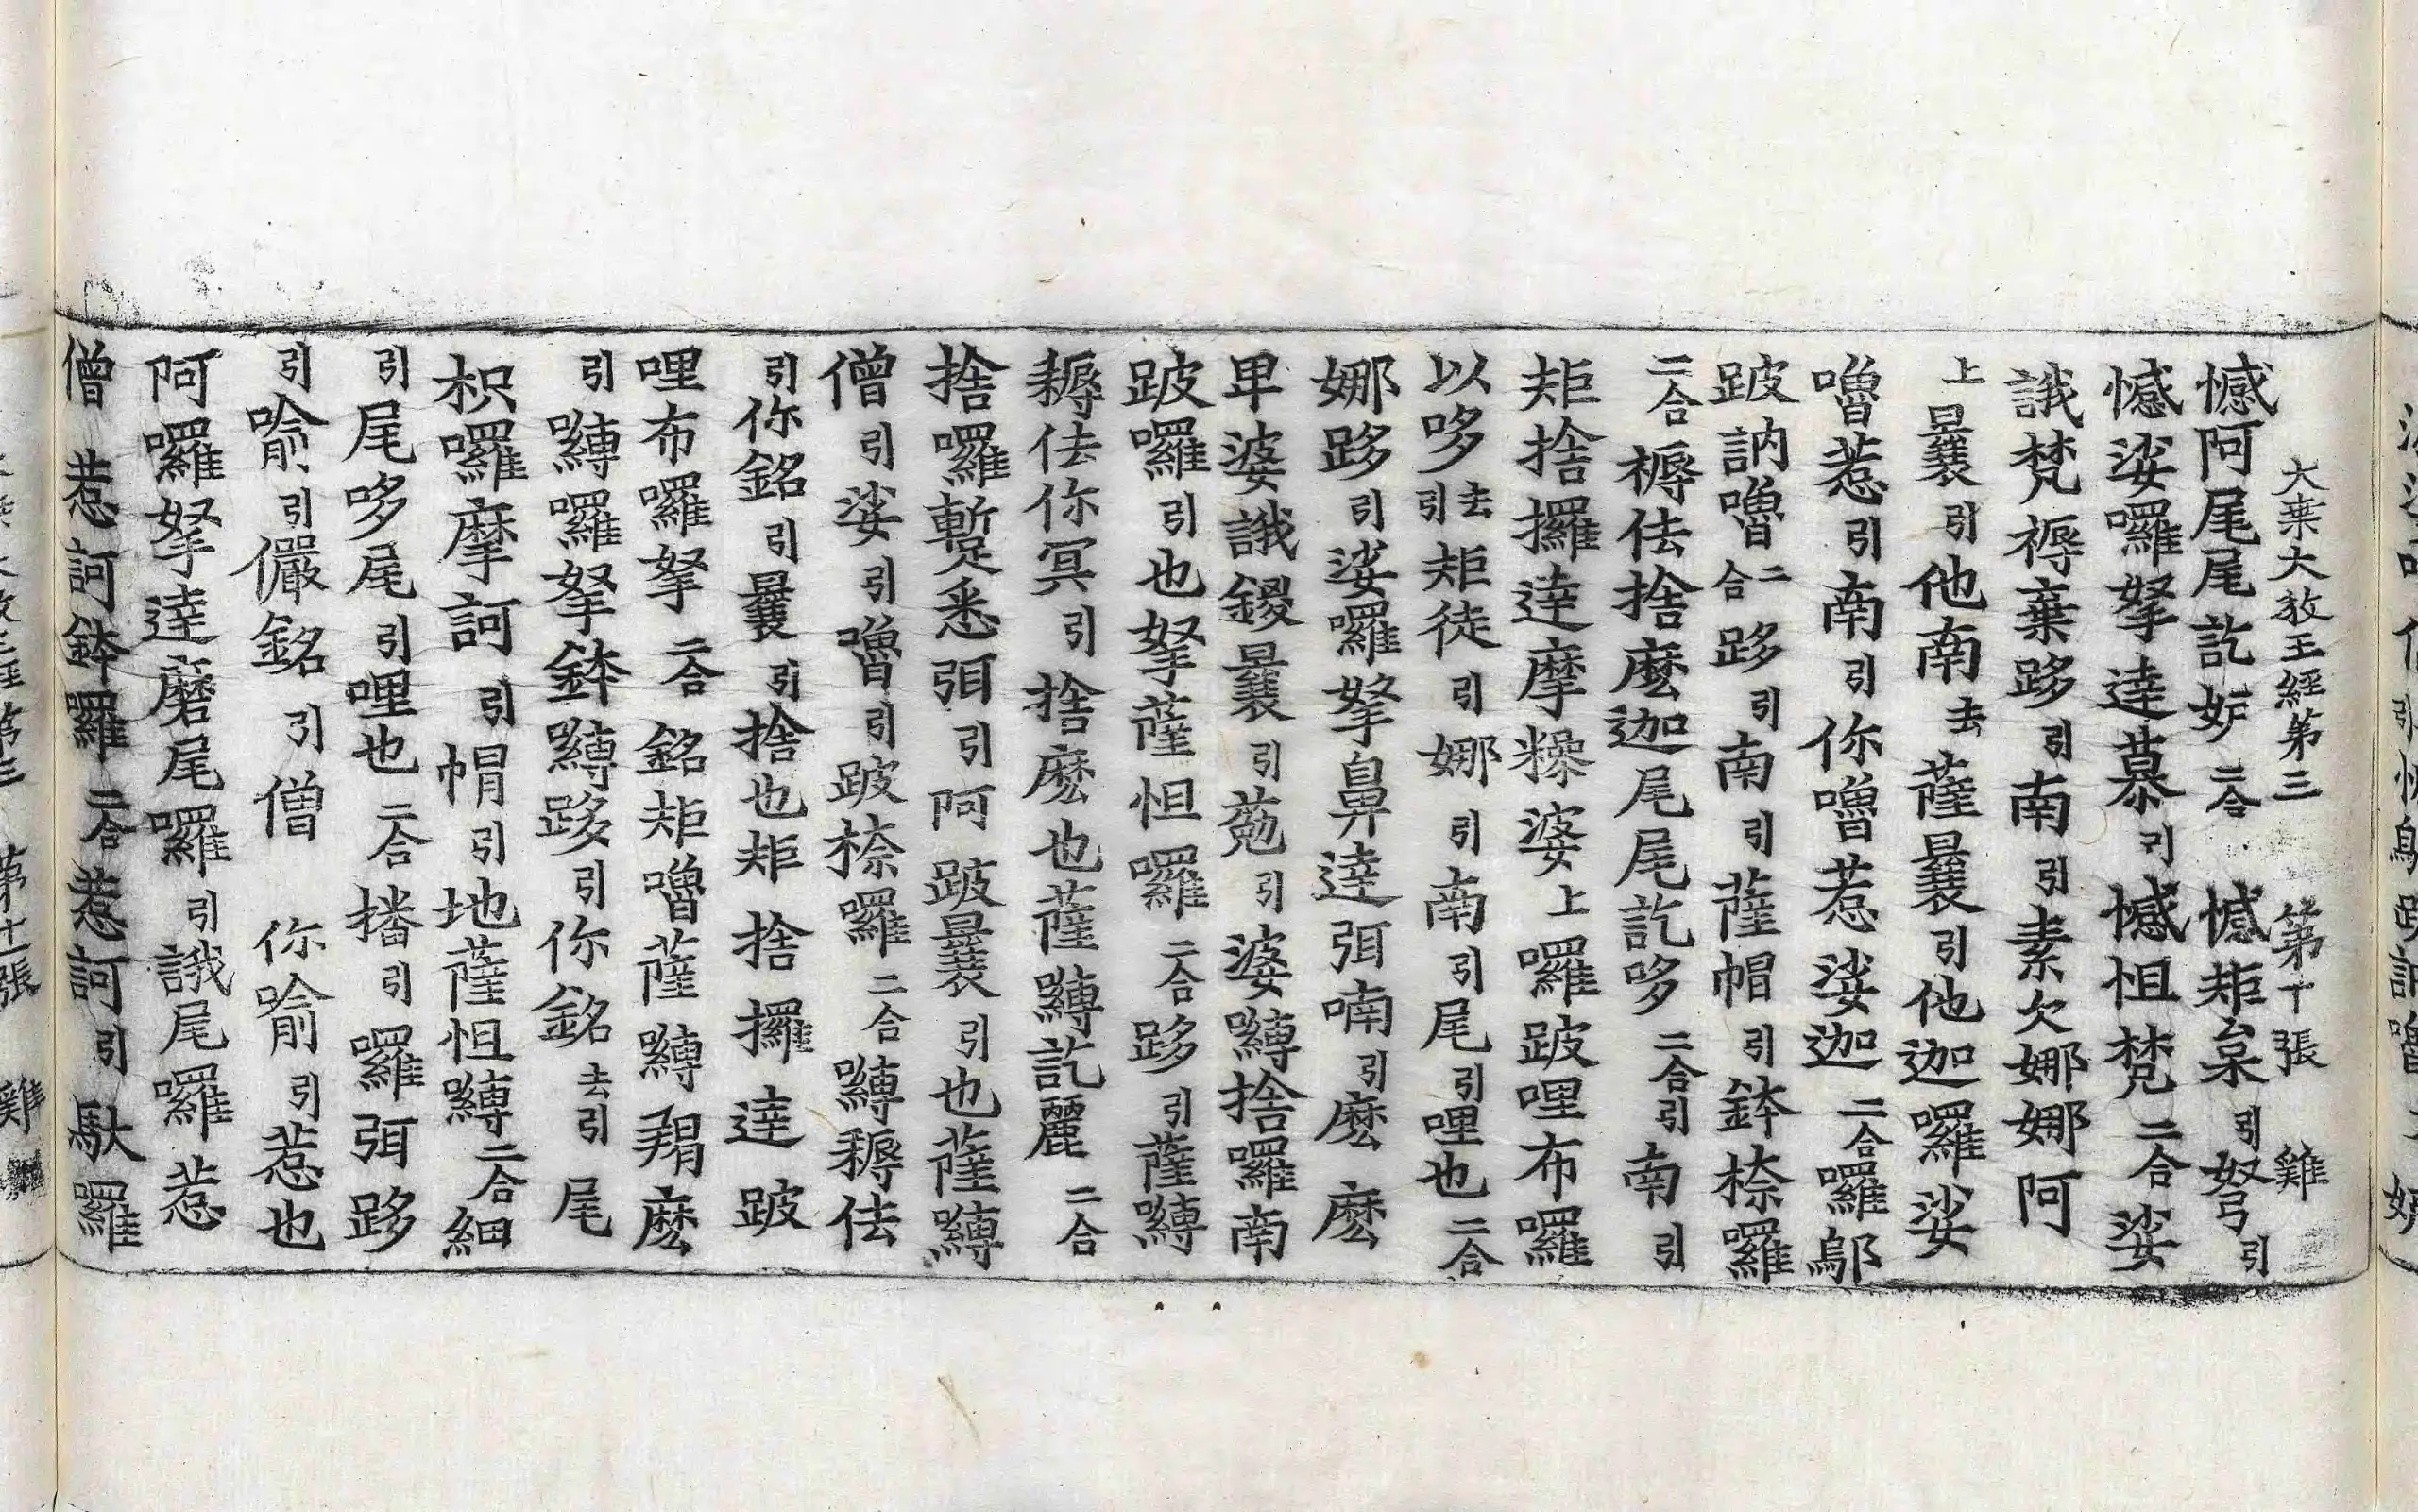 大乗大教王經第三 第十張 雞
憾阿尾尾訖妒二合 憾矩枲引弩引
憾娑囉拏達慕引憾怛梵二合娑
誐梵褥棄跢引南引素欠娜娜阿
上曩引他南去薩曩引他迦囉娑
嚕惹引南引你嚕惹娑迦二合囉鄔
跛訥嚕二合跢引南引薩帽引鉢捺囉
二合褥佉捨麽迦尾尾訖哆二合引南引
矩捨攞達摩糝婆上囉跛哩布囉
以哆去引矩徒引娜引南引尾引哩也二合
娜跢引娑囉拏鼻達弭喃引麽麽
卑婆誐鑁曩引菢引婆嚩捨囉南
跛囉引也拏薩怛囉二合跢引薩嚩
耨佉你冥引捨麽也薩嚩訖麗二合
捨囉蹔悉弭引阿跛曩引也薩嚩
僧引娑引嚕引跛捺囉二合嚩耨佉
引你銘引曩引捨也矩捨攞達跛
哩布囉拏二合銘矩嚕薩嚩羯麽
引嚩囉拏鉢嚩跢引你銘去引尾
枳囉摩訶引帽引地薩怛嚩二合細
引尾哆尾引哩也二合播引囉弭跢
引喻引儼銘引僧 你喻引惹也
阿囉拏達磨尾囉引誐尾囉惹
僧惹訶鉢囉二合惹訶引馱囉